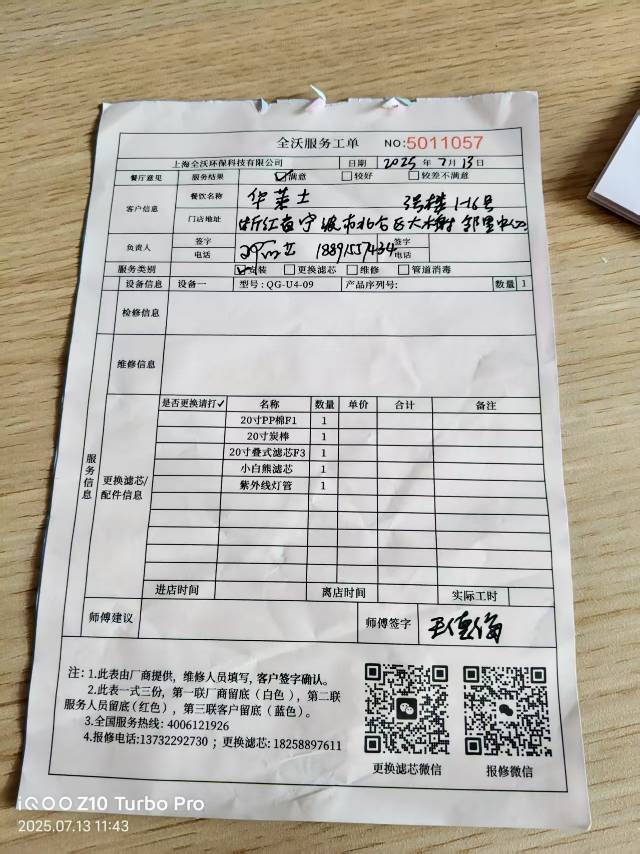 全沃服务工单 NO:5011057
上海全沃环保科技有限公司 日期 2025 年 7 月 13 日
餐厅意见 服务结果 ☑满意 □较好 □较差不满意
客户信息 餐饮名称 华莱士 3号楼 1-16号
门店地址 浙江省宁波市北仑区大榭邻里中心
负责人 签字 签字
电话 18891557434 电话
服务类别 ☑安装 □更换滤芯 □维修 □管道消毒
设备信息 设备一 型号:QG-U4-09 产品序列号: 数量 1
检修信息
维修信息
服务信息
更换滤芯/配件信息
是否更换请打✓ 名称 数量 单价 合计 备注
20寸PP棉F1 1
20寸炭棒 1
20寸叠式滤芯F3 1
小白熊滤芯 1
紫外线灯管 1
进店时间 离店时间 实际工时
师傅建议 师傅签字
注:1.此表由厂商提供,维修人员填写,客户签字确认。
2.此表一式三份,第一联厂商留底(白色),第二联
服务人员留底(红色),第三联客户留底(蓝色)。
3.全国服务热线:4006121926
4.报修电话:13732292730;更换滤芯:18258897611
更换滤芯微信 报修微信
iQOO Z10 Turbo Pro
2025.07.13 11:43